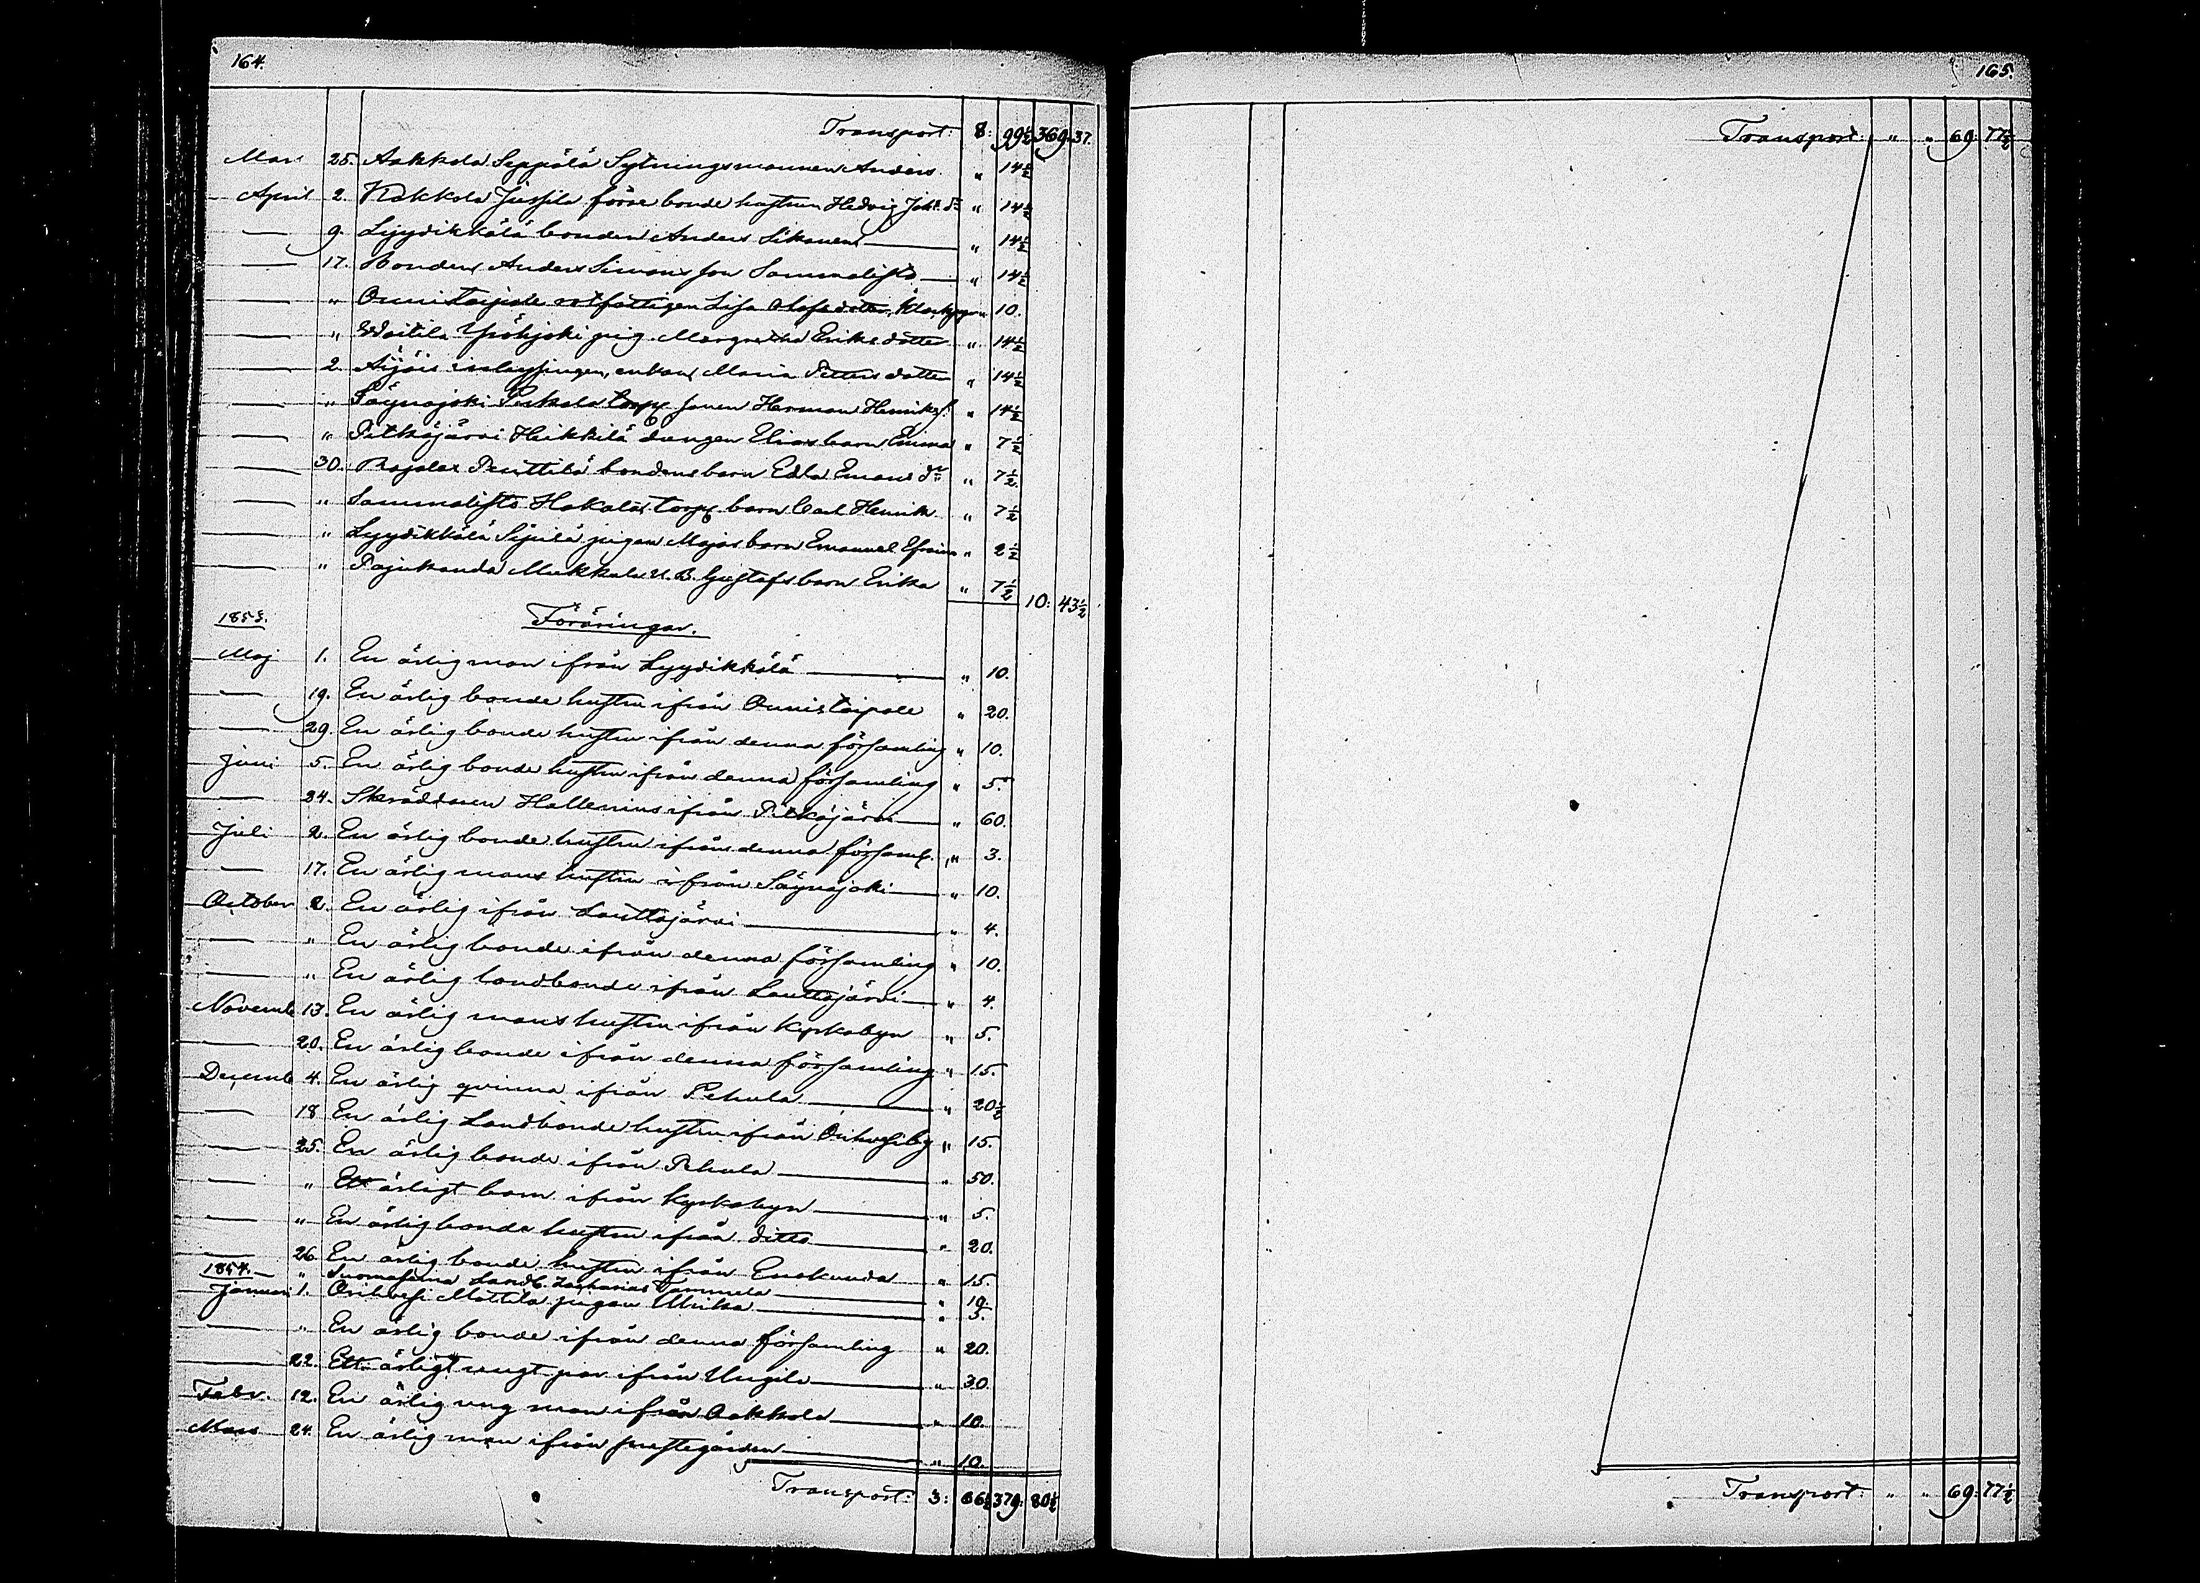 164.
Transport: 8: 99½ 369. 37.
Mars 25. Aakkola Seppälä Sytningsmannen Anders " 14½
April 2. Kakkola Jussila förre bonde hustrun Hedvig Joh: dr " 14½
— 9. Lyydikkälä bonden Anders Sikanen — " 14½
— 17. Bonden Anders Simonsson Sammalisto — " 14½
— " Onnistaipale rotfattigen Lisa Olofsdotter, Klockgen 10.
— " Waitila Yröhjoki pig. Margretha Eriksdotter " 14½
— 2. Äijäis inhysingen, enkan Maria Pettersdotter " 14½
— " Säynäjoki Perkola torp. sonen Herman Henriks: " 14½
— " Pitkäjärvi Heikkilä drängen Elias barn Emma " 7½
— 30. Rajalax Penttilä bondens barn Edla Emans dr " 7½
— " Sammalisto Hakala Torp. barn Carl Henrik " 7½
— " Lyydikkälä Sipilä pigan Majas barn Emanuel Efraim " 2½
— " Pajukanda Mukkala U.B. Gustafs barn Erika " 7½ 10: 43½
1853. Föräringar.
Maj 1. En ärlig man ifrån Lyydikkälä — " 10.
— 19. En ärlig bonde hustru ifrån Onnistaipale " 20.
— 29. En ärlig bonde hustru ifrån denna församling " 10.
Juni 5. En ärlig bonde hustru ifrån denna församling " 5.
— 24. Skräddaren Hallenius ifrån Pitkäjärvi — " 60.
Juli 2. En ärlig bonde hustru ifrån denna församl. " 3.
— 17. En ärlig mans hustru ifrån Säynäjoki — " 10.
October 2. En ärlig ifrån Lauttajärvi — " 4.
— " En ärlig bonde ifrån denna församling " 10.
— " En ärlig landbonde ifrån Lauttajärvi — " 4.
Novemb. 13. En ärlig mans hustru ifrån Kyrkobyn " 5.
— 20. En ärlig bonde ifrån denna församling " 15.
Decemb. 4. En ärlig qvinna ifrån Pehula — " 20½
— 18 En ärlig Landbonde hustru ifrån Orihvesi by " 15.
— 25. En ärlig bonde ifrån Pehula — " 50.
— " Ett ärligt barn ifrån Kyrkobyn — " 5.
— " En ärlig bonde hustru ifrån ditto — " 20.
— 26. En ärlig bonde hustru ifrån Enokunda " 15.
1854. " Suomasema Landb. Zacharias Tammela — " 19.
Januari 1. Orihvesi Mattila pigan Ulrika — " 5.
— " En ärlig bonde ifrån denna församling " 20.
— 22. Ett ärligt ungt par ifrån Uugila — " 30.
Febr. 12. En ärlig ung man ifrån Aakkola — " 10.
Mars 24. En ärlig man ifrån prestegården — " 10.
Transport: 3: 66½ 379: 80½
165.
Transport: " " 69: 77½
Transport: " " 69: 77½